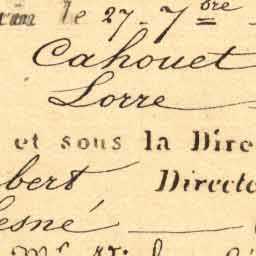 le 27 7bre
Cahouet
Lorre
et sous la Dire
bert Directe
esné
Mr